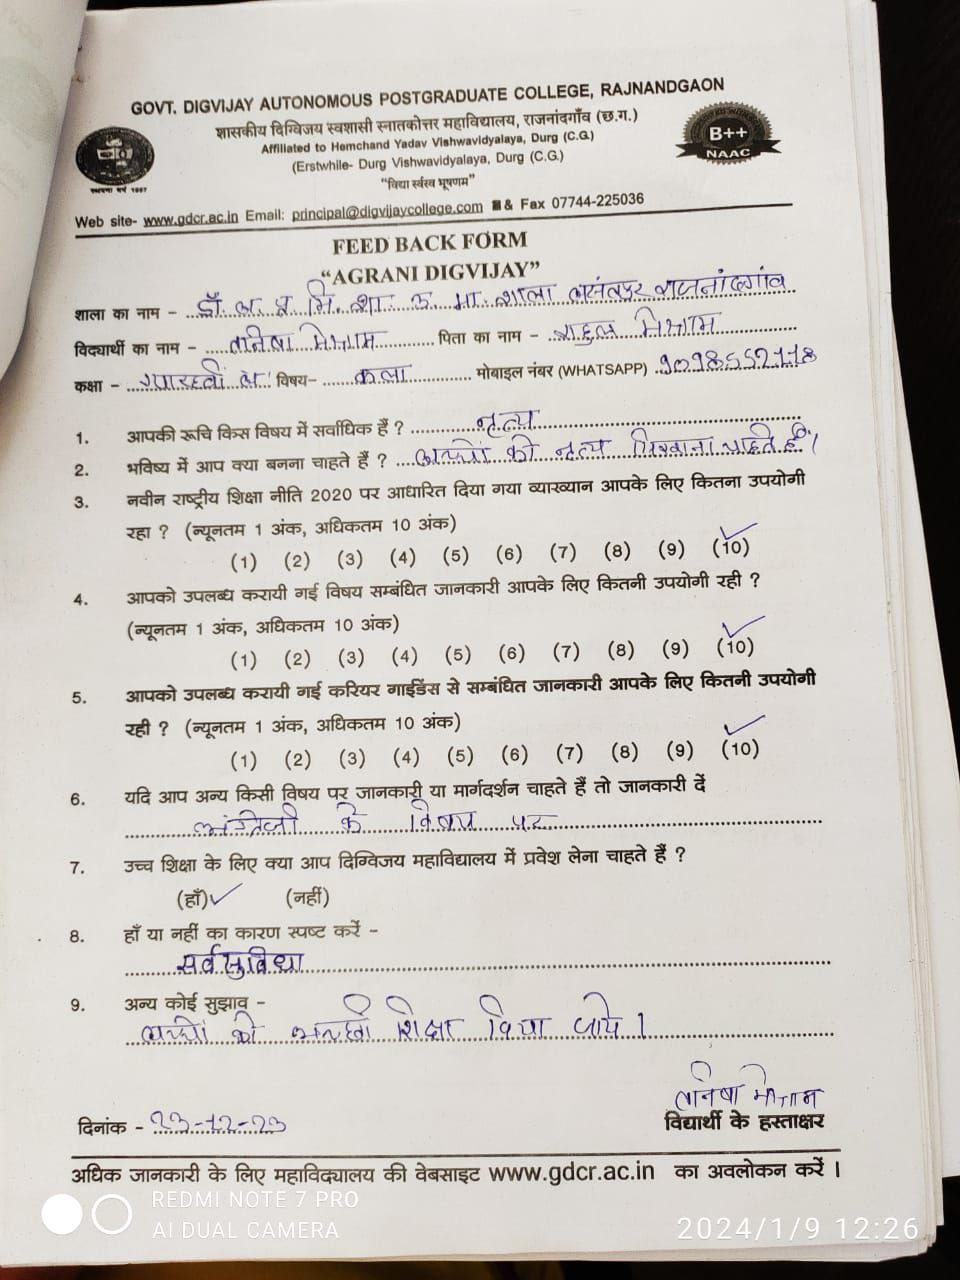 GOVT. DIGVIJAY AUTONOMOUS POSTGRADUATE COLLEGE, RAJNANDGAON
शासकीय दिग्विजय स्वशासी स्नातकोत्तर महाविद्यालय, राजनांदगाँव (छ.ग.)
Affiliated to Hemchand Yadav Vishwavidyalaya, Durg (C.G.)
(Erstwhile- Durg Vishwavidyalaya, Durg (C.G.)
"विद्या र्स्वस्व भूषणम"
स्थापना वर्ष 1957
B++
NAAC
Web site- www.gdcr.ac.in Email: principal@digvijaycollege.com & Fax 07744-225036
FEED BACK FORM
"AGRANI DIGVIJAY"
शाला का नाम - डॉ. ब. प्र. मि. शा. उ. मा. शाला बसंतपुर राजनांदगांव
विद्यार्थी का नाम - तनिषा मेश्राम पिता का नाम - राहुल मेश्राम
कक्षा - ग्यारहवीं ब विषय- कला मोबाइल नंबर (WHATSAPP)
1. आपकी रूचि किस विषय में सर्वाधिक हैं ? नृत्य
2. भविष्य में आप क्या बनना चाहते हैं ? बच्चों को नृत्य सिखाना चाहते हैं।
3. नवीन राष्ट्रीय शिक्षा नीति 2020 पर आधारित दिया गया व्याख्यान आपके लिए कितना उपयोगी
रहा ? (न्यूनतम 1 अंक, अधिकतम 10 अंक)
(1) (2) (3) (4) (5) (6) (7) (8) (9) (10)
4. आपको उपलब्ध करायी गई विषय सम्बंधित जानकारी आपके लिए कितनी उपयोगी रही ?
(न्यूनतम 1 अंक, अधिकतम 10 अंक)
(1) (2) (3) (4) (5) (6) (7) (8) (9) (10)
5. आपको उपलब्ध करायी गई करियर गाईडेंस से सम्बंधित जानकारी आपके लिए कितनी उपयोगी
रही ? (न्यूनतम 1 अंक, अधिकतम 10 अंक)
(1) (2) (3) (4) (5) (6) (7) (8) (9) (10)
6. यदि आप अन्य किसी विषय पर जानकारी या मार्गदर्शन चाहते हैं तो जानकारी दें
अंग्रेजी के विषय पर
7. उच्च शिक्षा के लिए क्या आप दिग्विजय महाविद्यालय में प्रवेश लेना चाहते हैं ?
(हाँ) (नहीं)
8. हाँ या नहीं का कारण स्पष्ट करें -
सर्वसुविधा
9. अन्य कोई सुझाव -
बच्चों को अच्छी शिक्षा दिया जाये।
तनिषा मेश्राम
दिनांक - 23-12-23 विद्यार्थी के हस्ताक्षर
अधिक जानकारी के लिए महाविद्यालय की वेबसाइट www.gdcr.ac.in का अवलोकन करें।
REDMI NOTE 7 PRO
AI DUAL CAMERA
2024/1/9 12:26